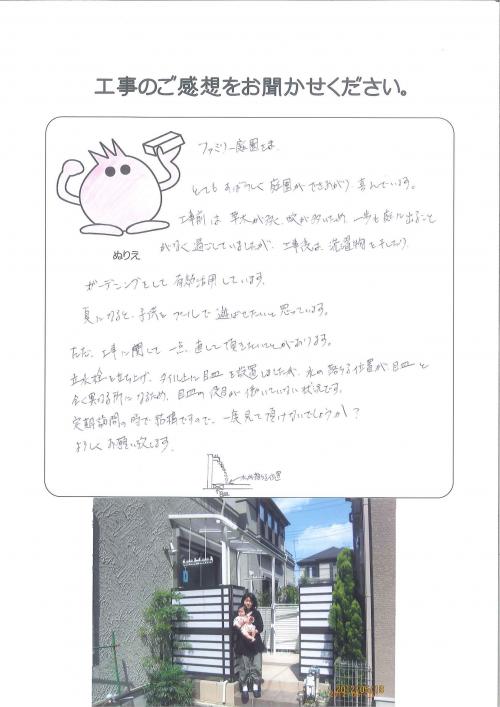 工事のご感想をお聞かせください。
ファミリー庭園さま
とても すばらしく 庭園が できあがり、喜んでいます。
工事前は 草木が多く、蚊が多いため、一歩も庭に出ること
がなく 過ごしていましたが、工事後は、洗濯物を干したり、
ぬりえ
ガーデニングをして 有効活用しています。
夏になると、子供を プールで 遊ばせたいと思っています。
ただ、工事に関して 一点、直して頂きたいことがあります。
立水栓を立ち上げ、タイル上に目皿を設置しましたが、水の落ちる位置が、目皿と
全く異なる所になるため、目皿の役目が働いていない状況です。
定期訪問の時で結構ですので、一度見て頂けないでしょうか?
よろしくお願い致します。
水の落ちる位置
目皿
2012/05/18